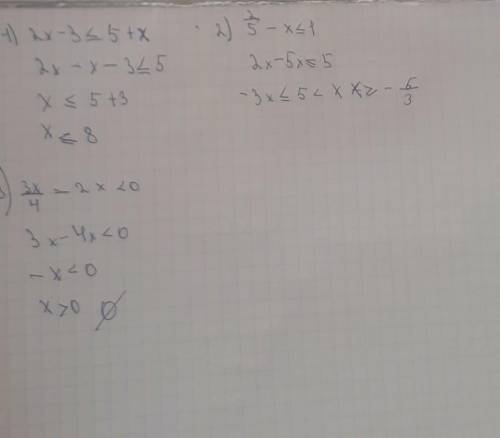 1) 2x-3≤5+x
2x-x-3≤5
x≤5+3
x≤8
2) 2/5-x≤1
2x-5x≤5
-3x≤5< x x≥-5/3
3) 3x/4-2x<0
3x-4x<0
-x<0
x>0 ∅